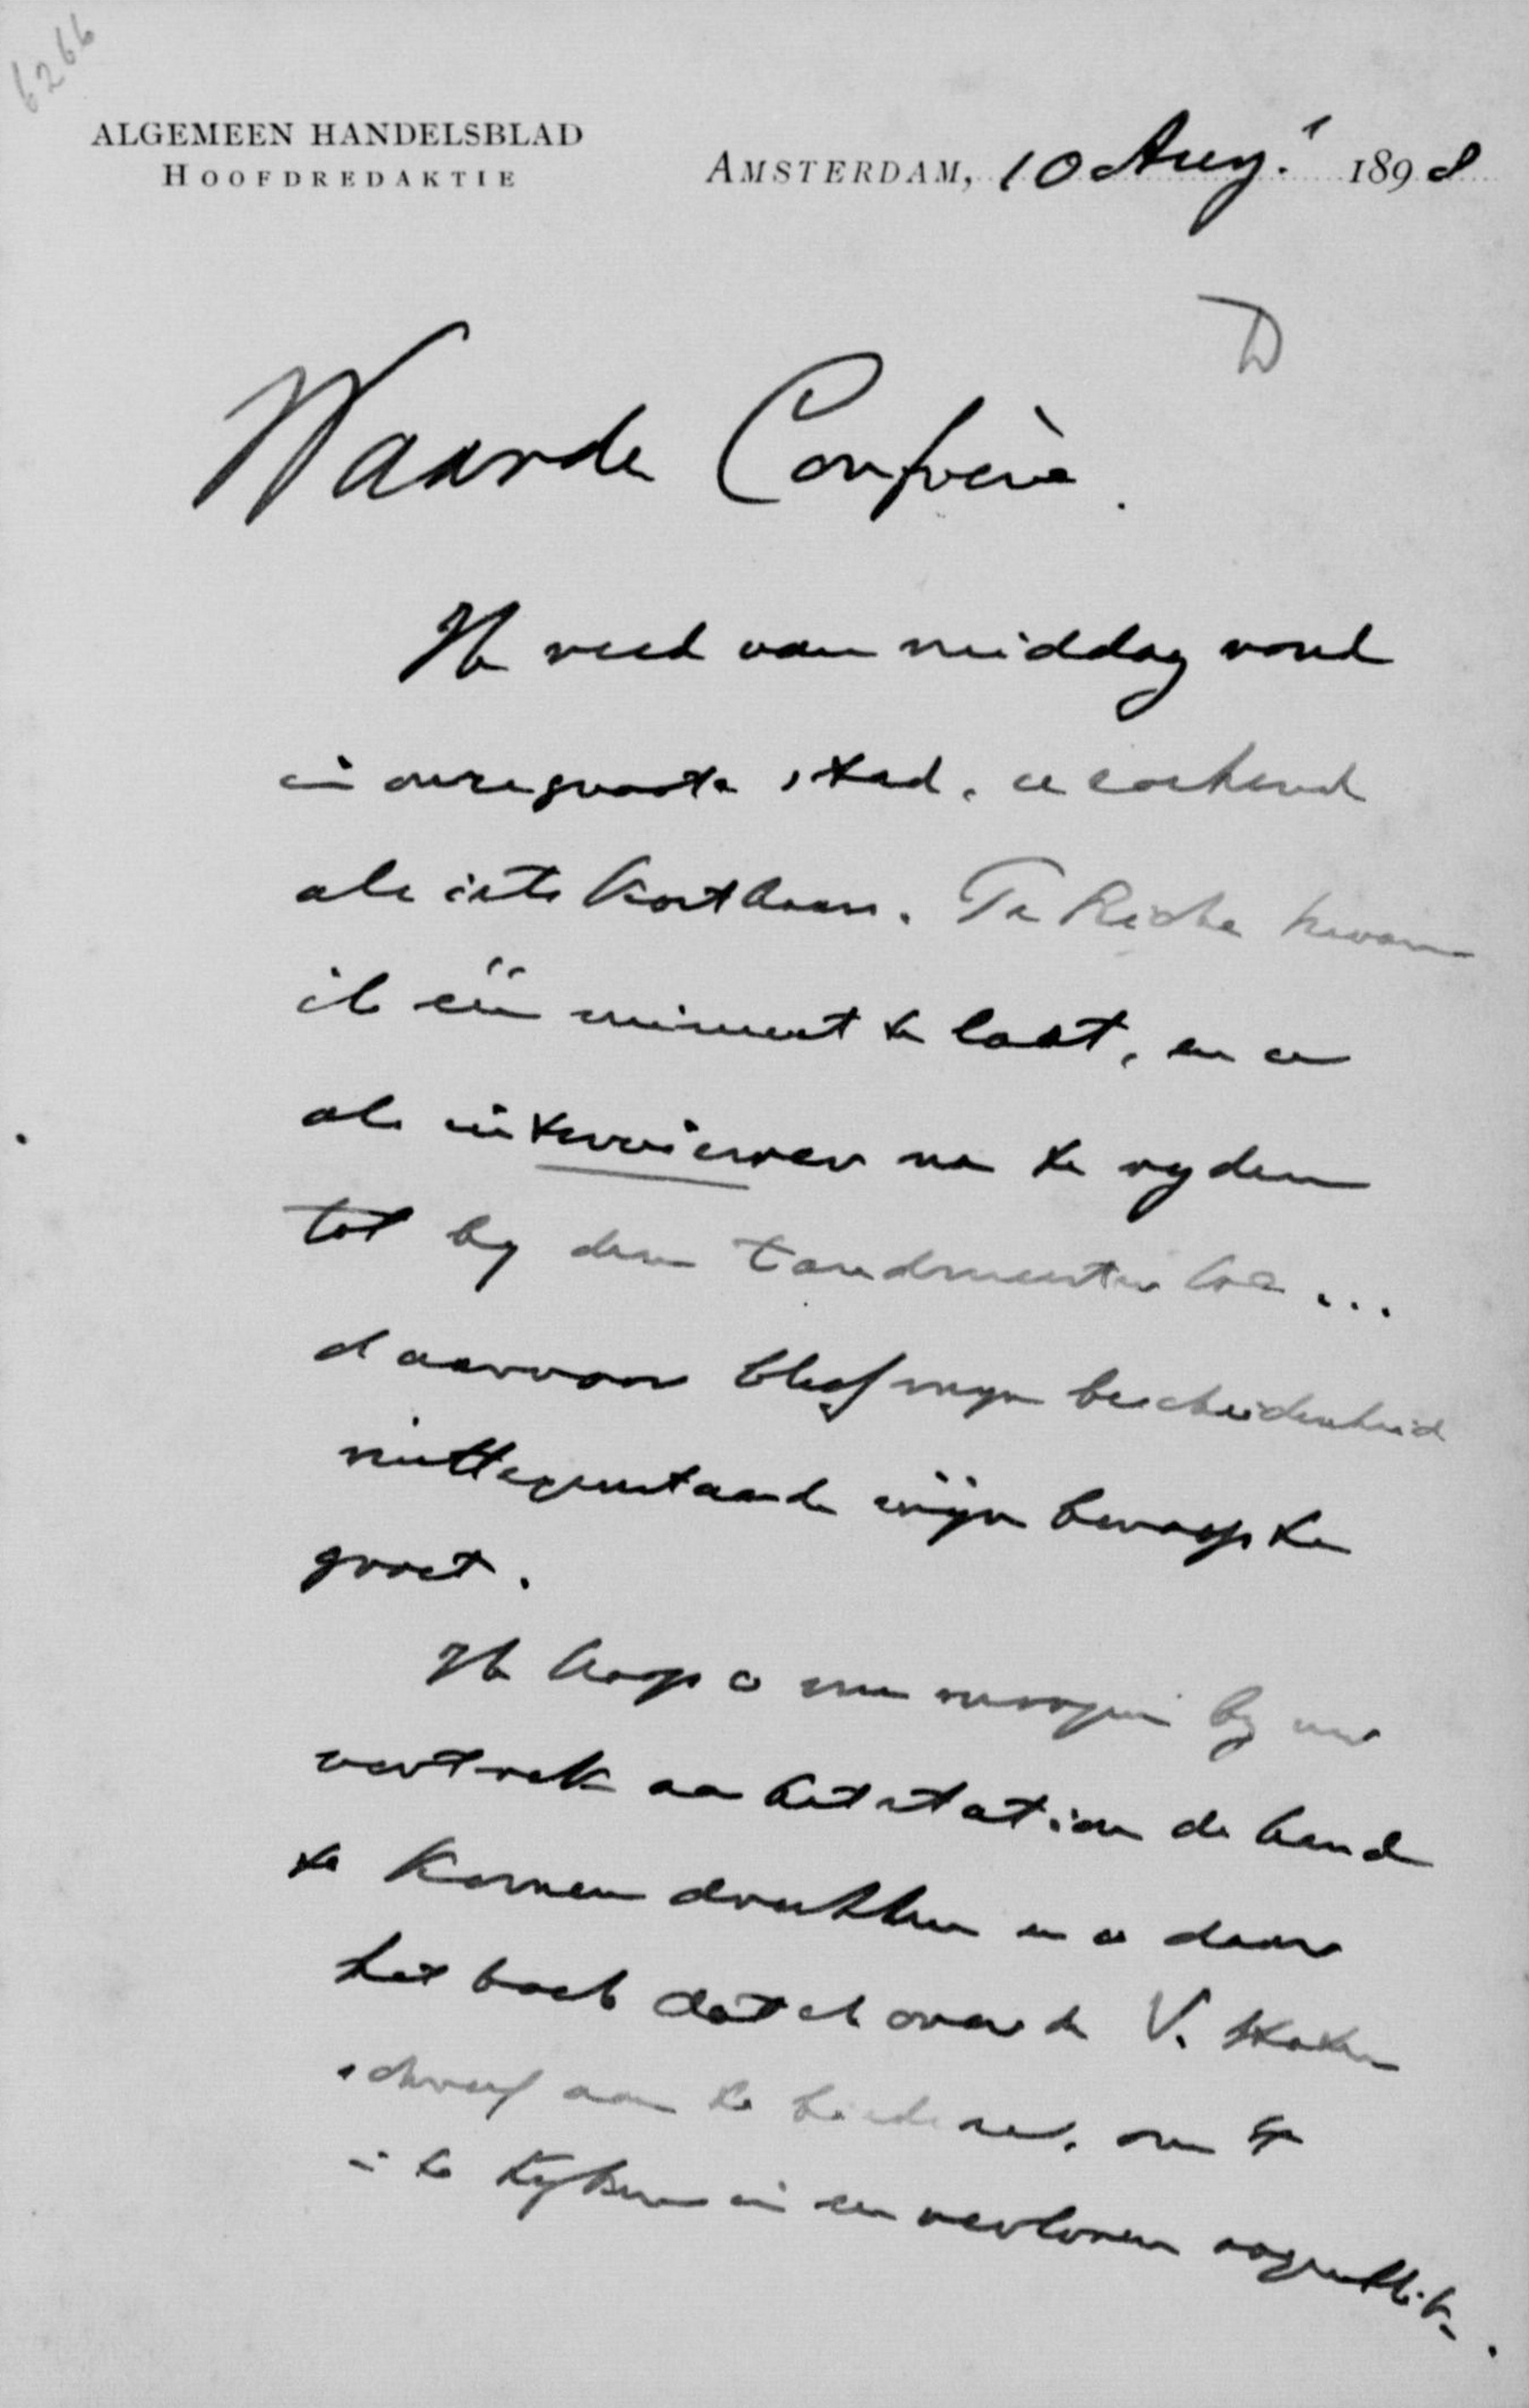 6266
ALGEMEEN HANDELSBLAD
HOOFDREDAKTIE
AMSTERDAM, 10 Aug. 1898
D
Waarde Confrère.
Ik reed van middag rond
in onze groote stad, u zoekend
als iets kostbaars. Te Riche kwam
ik één minuut te laat, en u
als interviewer na te ryden
tot by den tandmeester toe...
daarvoor bleef myn bescheidenheid
niettegenstaande mijn beroep te
groot.
Ik hoop u nu morgen by uw
vertrek aan het station de hand
te komen drukken en u daar
het boek dat ik over de V. Staten
schreef aan te bieden, om
in te kyken in een verloren oogenblik.